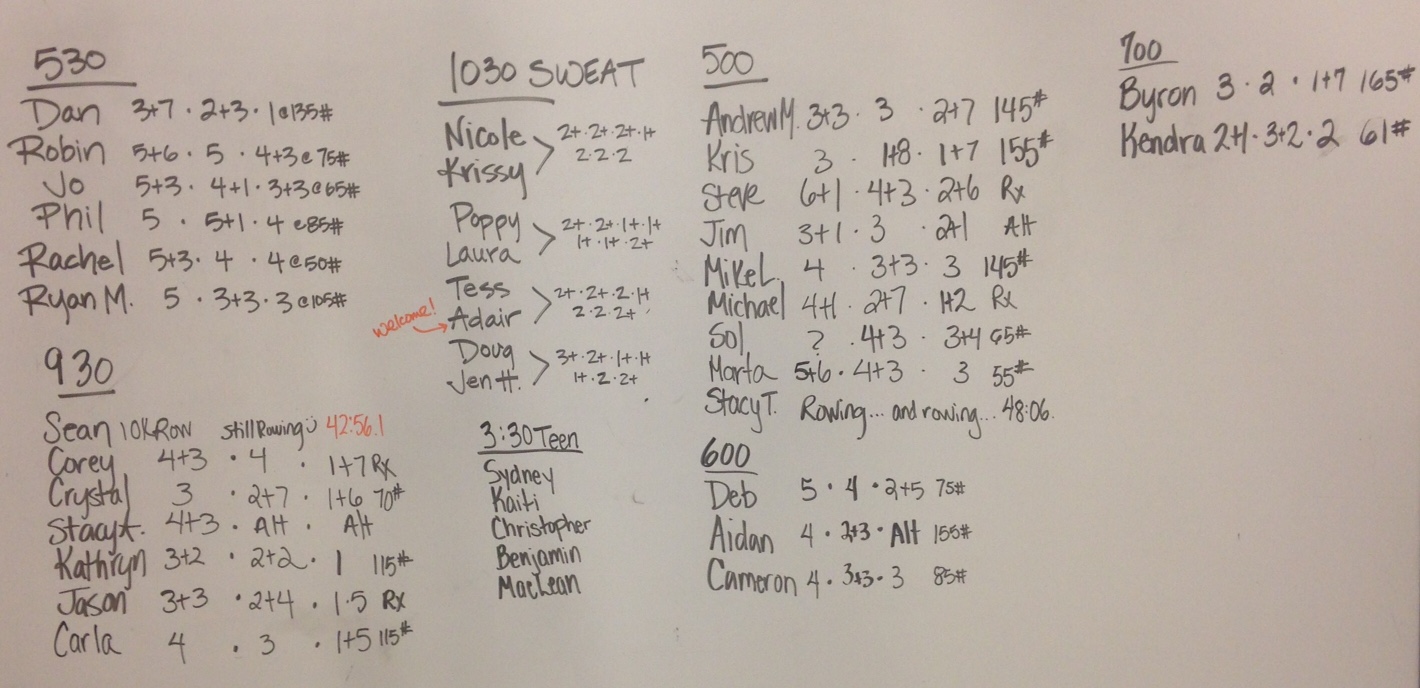 530
Dan 3+7 · 2+3 · 1@135#
Robin 5+6 · 5 · 4+3@75#
Jo 5+3 · 4+1 · 3+3@65#
Phil 5 · 5+1 · 4@85#
Rachel 5+3 · 4 · 4@50#
Ryan M. 5 · 3+3 · 3@105#
930
Sean 10K Row Still Rowing 42:56.1
Corey 4+3 · 4 · 1+7 Rx
Crystal 3 · 2+7 · 1+6 70#
Stacy 4+3 · Alt · Alt
Kathryn 3+2 · 2+2 · 1 115#
Jason 3+3 · 2+4 · 1·5 Rx
Carla 4 · 3 · 1+5 115#
1030 SWEAT
Nicole 2+·2+·2+·1+
Krissy 2·2·2
Poppy 2+·2+·1+·1+
Laura 1+·1+·2+
Tess 2+·2+·2·1+
welcome! Adair 2·2·2+
Doug 3+·2+·1+·1+
Jen H. 1+·2·2+
3:30 Teen
Sydney
Kaiti
Christopher
Benjamin
MacLean
500
Andrew M. 3+3 · 3 · 2+7 145#
Kris 3 · 1+8 · 1+7 155#
Steve 6+1 · 4+3 · 2+6 Rx
Jim 3+1 · 3 · 2+1 Alt
Mike L. 4 · 3+3 · 3 145#
Michael 4+1 · 2+7 · 1+2 Rx
Sol ? · 4+3 · 3+4 65#
Marta 5+6 · 4+3 · 3 55#
Stacy T. Rowing... and rowing... 48:06.
600
Deb 5 · 4 · 2+5 75#
Aidan 4 · 2+3 · Alt 155#
Cameron 4 · 3+3 · 3 85#
700
Byron 3 · 2 · 1+7 165#
Kendra 2+1 · 3+2 · 2 61#